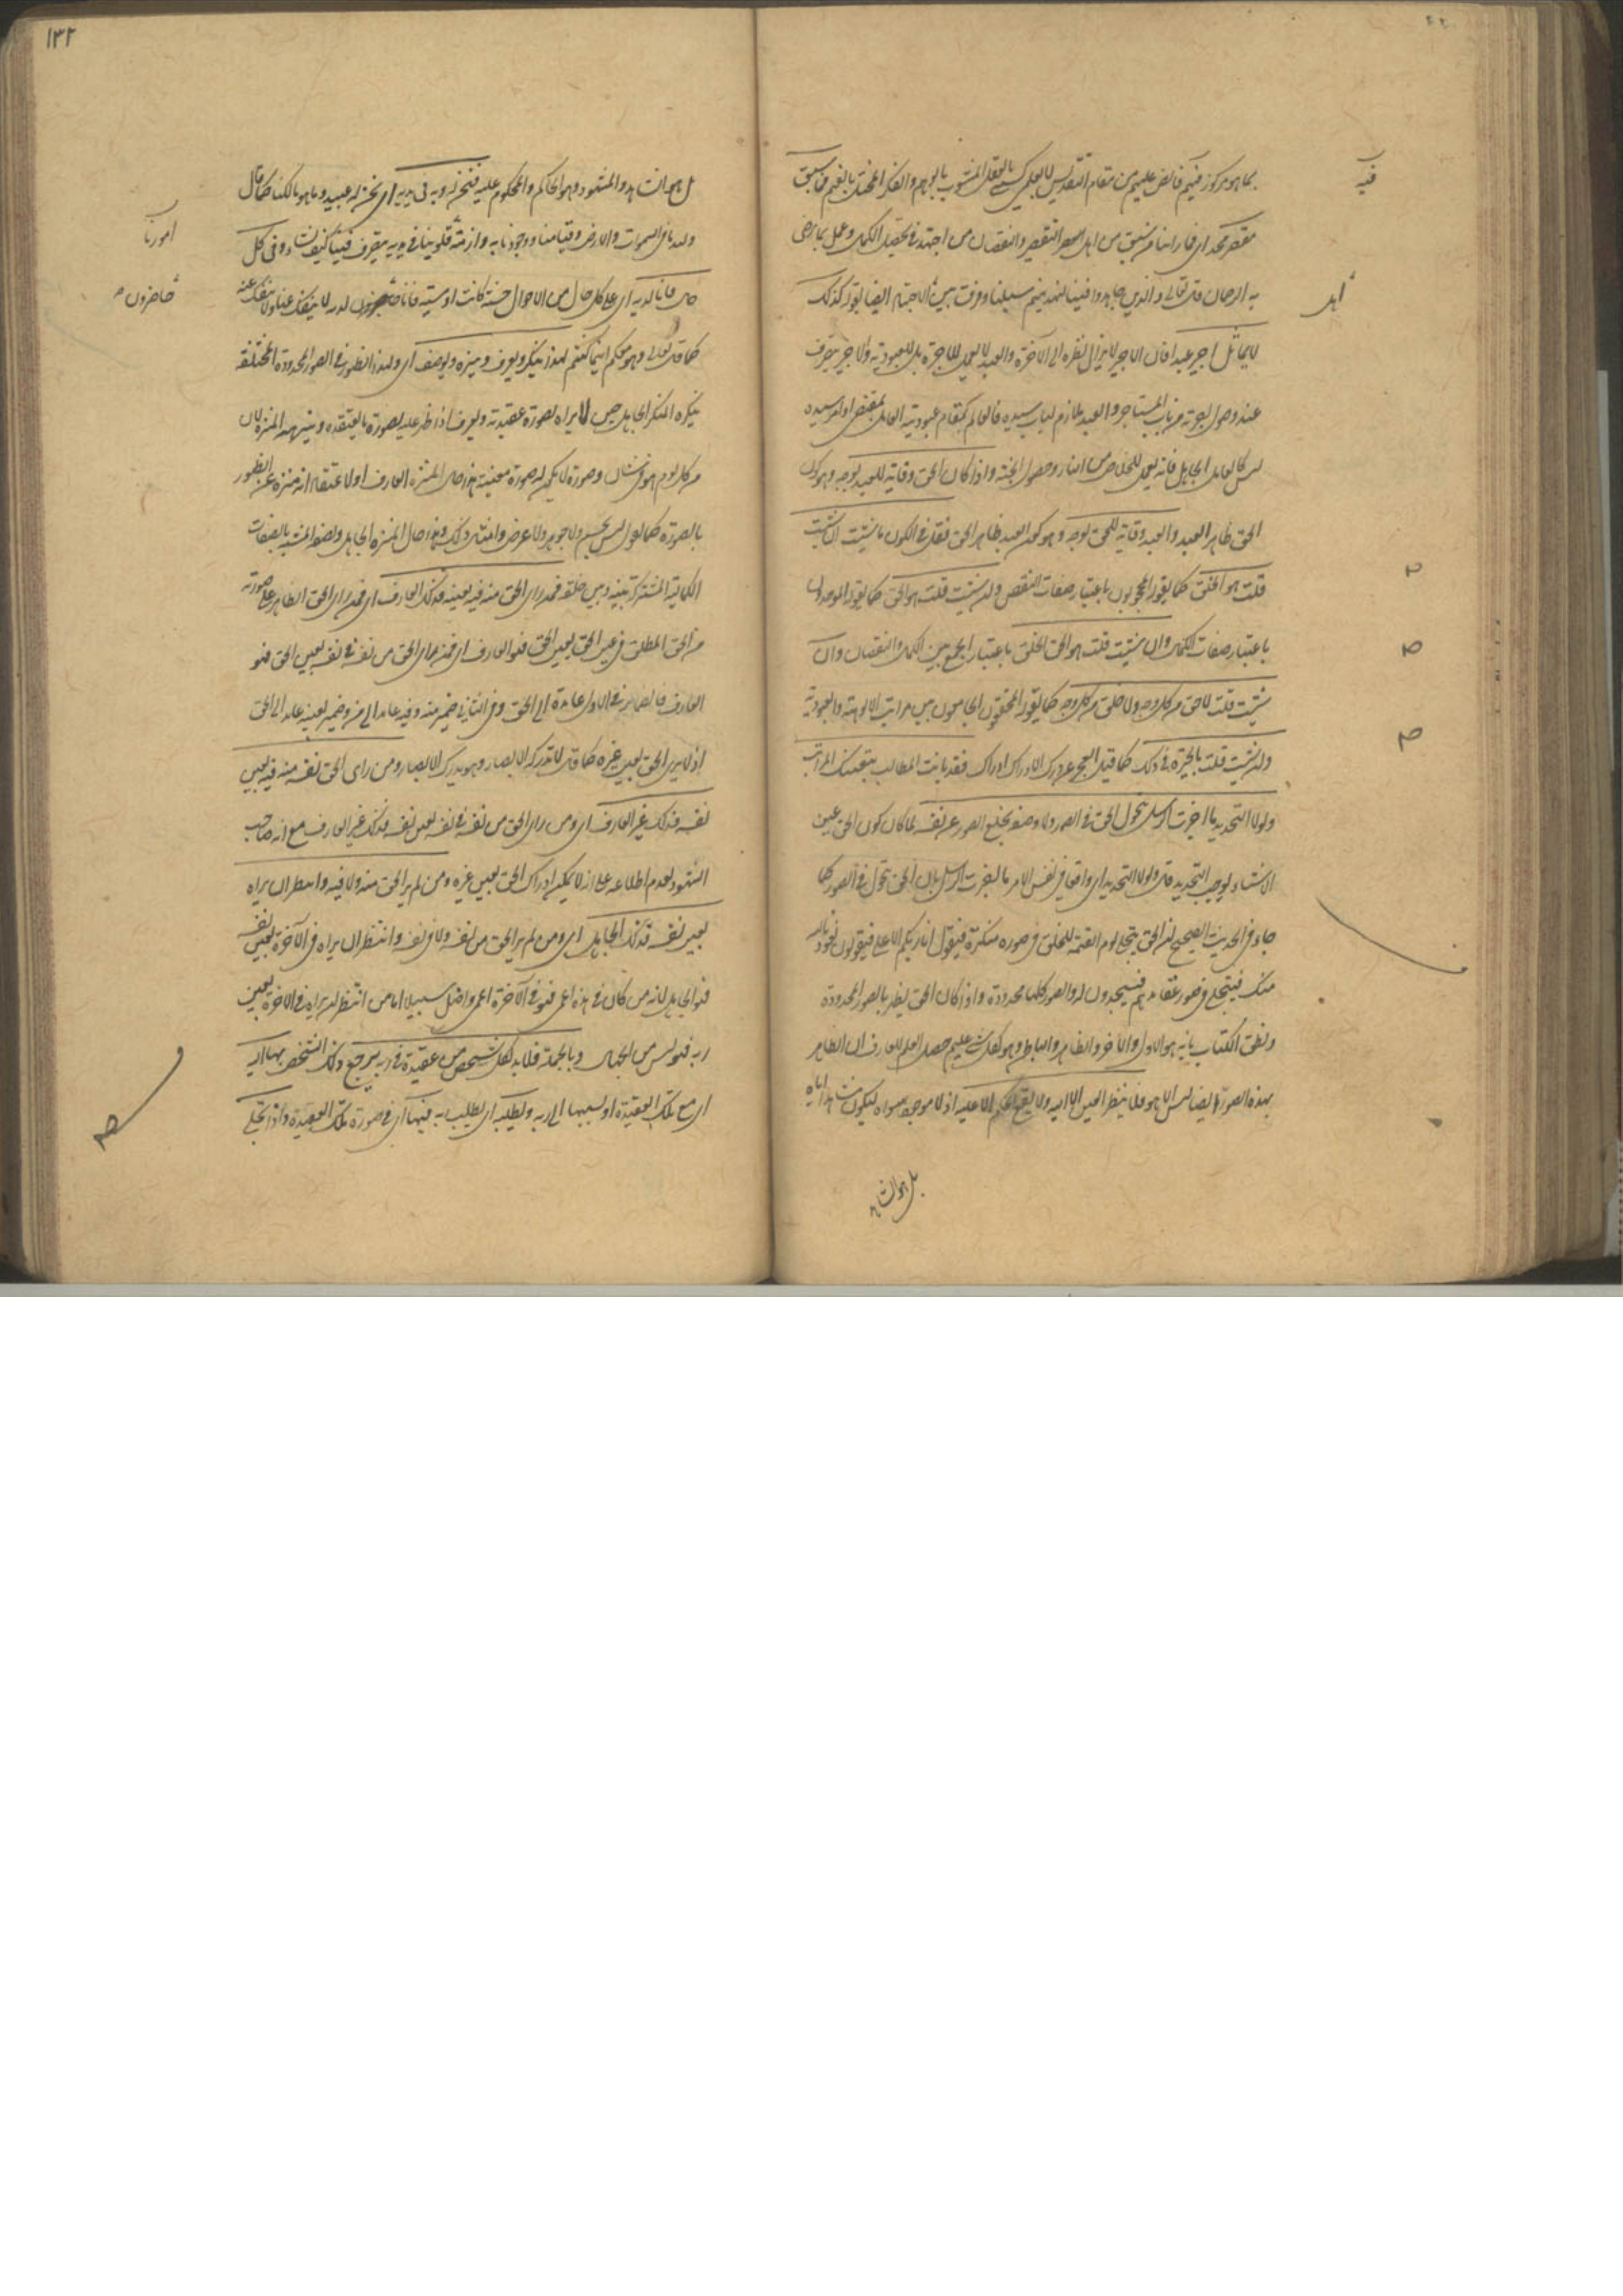 بما هو مركوز فيهم فائض عليهم من مقام التقديس لا بالعمل كسبى بالعقل المشوب بالوهم والفكر بالفهم فما سبق
مقصر مجدا اى فما راينا من سبق من اهل التقصير والنقصان من اجتهد فى تحصيل الكمال وعمل بما يرضى
به الرحمان قال تعالى والذين جاهدوا فينا لنهدينهم سبلنا وفرقت بين الاجتهاد ايضا بقوله كذلك
لا يماثل اجير عبدا فان الاجير لا يزال نظره الى الآخرة والعبد لا يعمل للاجرة بل للعبودية والاجير ينصرف
عند وصول اجرته من باب المستاجر والعبد ملازم لباب سيده فالعالم بمقام عبوديته العامل بمقتضى اوامر سيده
ليس كالعامل الجاهل فانه يعمل للخلاص من النار وحصول الجنة واذا كان الحق وقاية للعبد بوجه وهو كون
الحق ظاهر العبد والعبد وقاية للحق بوجه وهو كون العبد ظاهر الحق فقل فى الكون ما شئت ان شئت
قلت هو الخلق كما يقول المحجوبون باعتبار صفات النقص وان شئت قلت هو الحق كما يقول الموحدون
باعتبار صفات الكمال وان شئت قلت هو الحق الخلق باعتبار الجمع بين الكمال والنقصان وان
شئت قلت لا حق من كل وجه ولا خلق من كل وجه كما يقول المحققون الجامعون بين مراتب الالهية والعبودية
وان شئت قلت بالحيرة فى ذلك كما قيل العجز عن درك الادراك ادراك فقد بانت المطالب بتعيينك المراتب
ولولا التحديد ما اخبرت الرسل بتحول الحق فى الصور ولا وصفته بخلع الصور عن نفسه لما كان كون الحق عين
الاشياء يوجب التحديد قال ولولا التحديد اى واقعا فى نفس الامر ما اخبرت الرسل بان الحق يتحول فى الصور كما
جاء فى الحديث الصحيح ان الحق يتجلى يوم القيمة للخلق فى صورة منكرة فيقول انا ربكم الاعلى فيقولون نعوذ بالله
منك فيتجلى فى صور عقائدهم فيسجدون له والصور كلها محدودة واذا كان الحق يظهر بالصور المحدودة
ونطق الكتاب بانه هو الاول والآخر والظاهر والباطن وهو بكل شئ عليم حصل العلم للعارف ان الظاهر
بهذه الصور ايضا ليس الا هو فلا ينظر العين الا اليه ولا يقع الحكم الا عليه اذ لا موجود سواه ليكون مشاهدا اياه
بل هو الشاهد
فيه
اهل
١٣٢
بل هو الشاهد والمشهود وهو الحاكم والمحكوم عليه فنحن له وبه فى يديه اى نحن له عبيد وما هو مالكنا كما قال
وله ما فى السموات والارض وقيامنا ووجودنا به وازمة قلوبنا فى يديه يتصرف فينا كيف شاء وفى كل
حال فانا لديه اى على كل حال من الاحوال حسنة كانت او سيئة فانا حاضرون لديه لا ينفك عنا ولا ننفك عنه
كما قال تعالى وهو معكم اينما كنتم لهذا ينكر ويعرف وينزه ويوصف اى ولهذا الظهور فى الصور المحدودة المختلفة
ينكره المنكر الجاهل حين لا يراه بصورة عقيدته ويعرف اذا ظهر عليه بصورة ما يعتقده وينزهه المنزه لان
من كل يوم هو فى شان وصورة لا يكون له صورة معينة هذا حال المنزه العارف او لاعتقاده انه منزه عن الظهور
بالصورة كما يقول ليس بجسم ولا جوهر ولا عرض وامثال ذلك وهذا حال المنزه الجاهل ويصفه المشبه بالصفات
الكمالية المشتركة بينه وبين خلقه فمن راى الحق منه فيه بعينه فذلك العارف اى فمن راى الحق الظاهر على صورته
من الحق المطلق فى عين الحق بعين الحق فهو العارف اى فمن راى الحق من نفسه فى نفسه بعين الحق فهو
العارف فالضمائر فى الاول عائدة الى الحق وفى الثانى ضمير منه وفيه عائد الى من وضمير بعينه عائد الى الحق
اذ لا يرى الحق بعين غيره كما قال لا تدركه الابصار وهو يدرك الابصار ومن راى الحق منه فيه بعين
نفسه فذلك غير العارف اى ومن راى الحق من نفسه فى نفسه بعين نفسه فذلك غير العارف مع انه صاحب
الشهود لعدم اطلاعه على انه لا يمكن ادراك الحق بعين غيره ومن لم ير الحق منه ولا فيه وانتظر ان يراه
بعين نفسه فذلك الجاهل اى ومن لم ير الحق من نفسه ولا فى نفسه وانتظر ان يراه فى الآخرة بعين نفسه
فهو الجاهل لانه من كان فى هذه اعمى فهو فى الآخرة اعمى واضل سبيلا اما من انتظر ان يراه فى الاخرة بعين
ربه فهو ليس من الجهال وبالجملة فلا بد لكل شخص من عقيدة فى ربه يرجع ذلك الشخص بها اليه
اى مع تلك العقيدة او بسببها الى ربه ويطلبه اى يطلب ربه فيها اى فى صورة تلك العقيدة واذا تجلى
امورنا
حاضرون